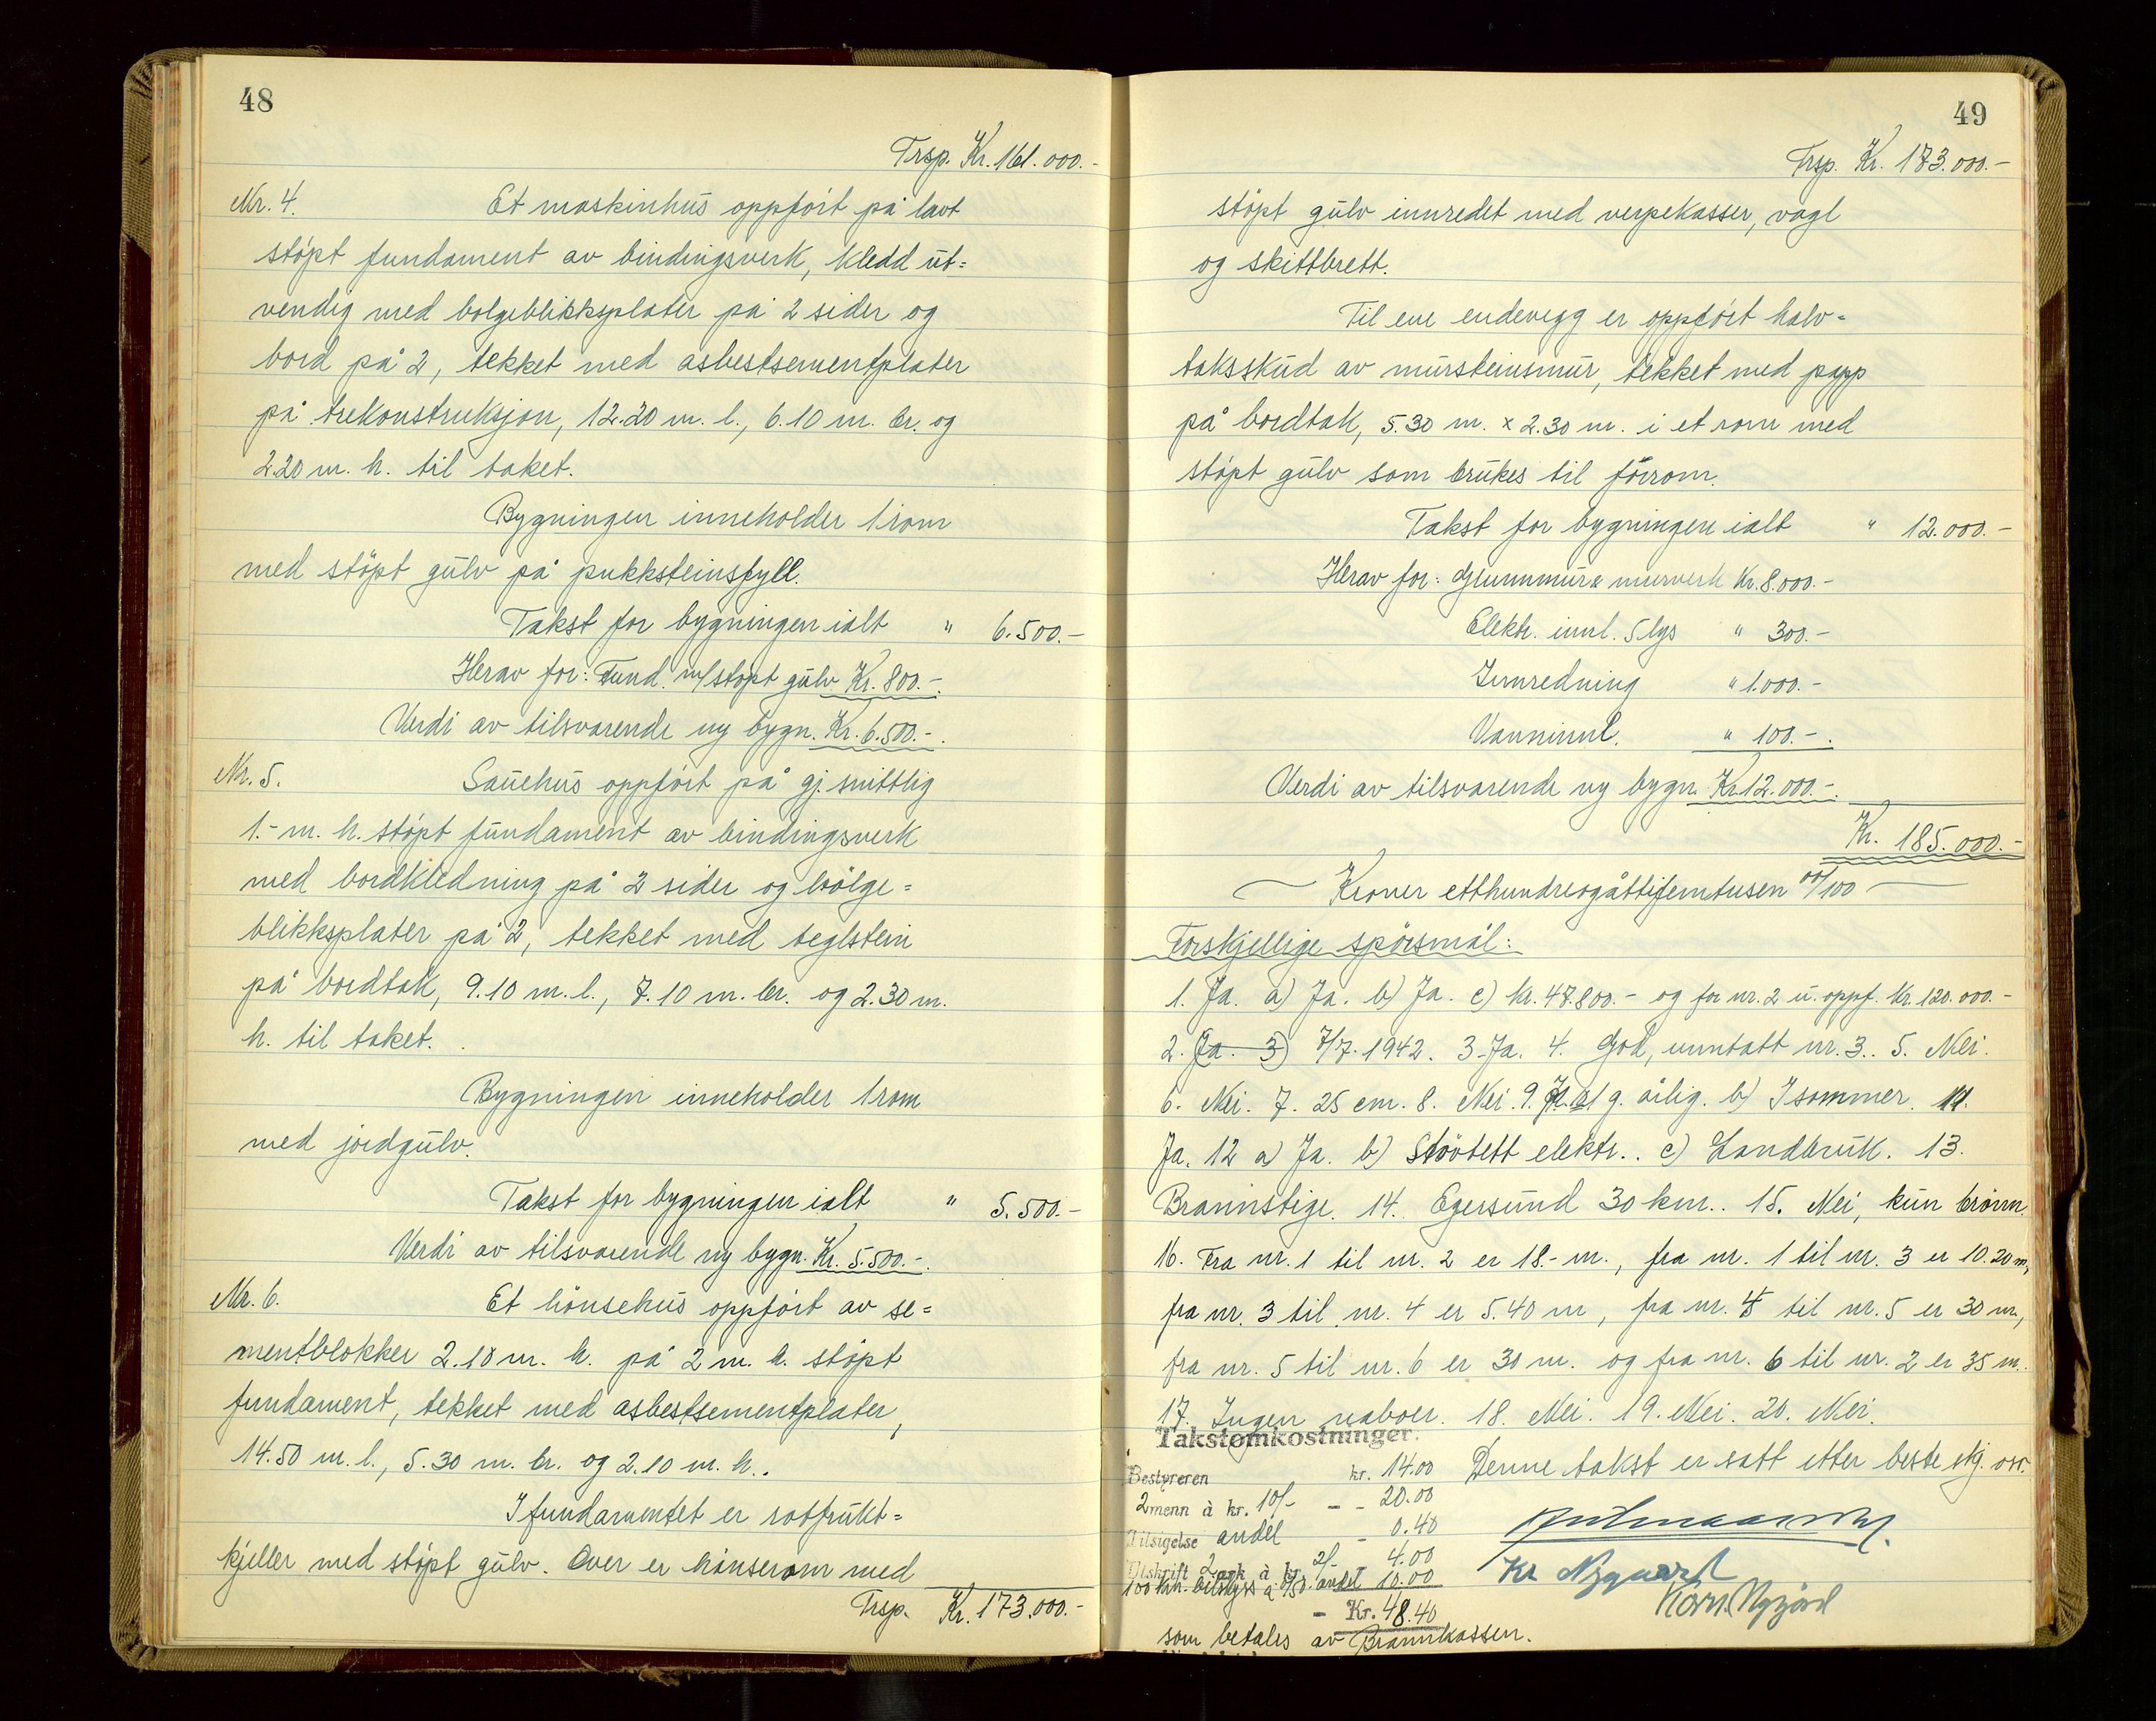 48
Trsp. Kr. 161.000.-
Nr. 4. Et maskinhus oppført på lavt
støpt fundament av bindingsverk, kledd ut=
vendig med bølgeblikksplater på 2 sider og
bord på 2, tekket med asbestsementplater
på trekonstruksjon, 12.20 m. l., 6.10 m. br. og
2.20 m. h. til taket.
Bygningen inneholder 1 rom
med støpt gulv på pukksteinsfyll.
Takst for bygningen ialt " 6.500.-
Herav for: Fund. m/støpt gulv Kr. 800.-
Verdi av tilsvarende ny bygn. Kr. 6.500.-.
Nr. 5. Sauehus oppført på gj.snittlig
1.- m. h. støpt fundament av bindingsverk
med bordkledning på 2 sider og bølge=
blikksplater på 2, tekket med teglstein
på bordtak, 9.10 m. l., 7.10 m. br. og 2.30 m.
h. til taket.
Bygningen inneholder 1 rom
med jordgulv.
Takst for bygningen ialt " 5.500.-
Verdi av tilsvarende ny bygn. Kr. 5.500.-.
Nr. 6. Et hönsehus oppført av se=
mentblokker 2.10 m. h. på 2 m. h. støpt
fundament, tekket med asbestsementplater,
14.50 m. l., 5.30 m. br. og 2.10 m. h..
I fundamentet er rotfrukt=
kjeller med støpt gulv. Over er hönserom med
Trsp. Kr. 173.000.-
49
Trsp. Kr. 173.000.-
støpt gulv innredet med verpekasser, vagl
og skittbrett.
Til ene endevegg er oppført halv=
taksskud av mursteinsmur, tekket med papp
på bordtak, 5.30 m. x 2.30 m. i et rom med
støpt gulv som brukes til fôrrom.
Takst for bygningen ialt " 12.000.-
Herav for: Grunnmur & murverk Kr. 8.000.-
Elektr. innl. 5 lys " 300.-
Innredning " 1.000.-
Vanninnl. " 100.-.
Verdi av tilsvarende ny bygn. Kr 12.000.-.
Kr. 185.000.-
Kroner etthundreogåttifemtusen 00/100
Forskjellige spørsmål:
1. Ja. a) Ja. b) Ja. c) kr. 47.800.- og for nr. 2 u. oppf. kr. 120.000.-
2. Ja. 3) 7/7. 1942. 3. Ja. 4. God, unntatt nr. 3.. 5. Nei.
6. Nei. 7. 25 cm. 8. Nei. 9. a) 1 g. årlig. b) I sommer. 11.
Ja. 12 a) Ja. b) Støvtett elektr.. c) Landbruk. 13.
Brannstige. 14. Egersund 30 km.. 15. Nei, kun brønn.
16. Fra nr. 1 til nr. 2 er 18.- m., fra nr. 1 til nr. 3 er 10.20 m,
fra nr. 3 til nr. 4 er 5.40 m, fra nr. 4 til nr. 5 er 30 m,
fra nr. 5 til nr. 6 er 30 m. og fra nr. 6 til nr. 2 er 35 m.
17. Ingen naboer. 18. Nei. 19. Nei. 20. Nei.
Takstomkostninger:
Bestyreren kr. 14.00 Denne takst er satt etter beste skj. osv.
2 menn à kr. 10/- - - 20.00
Tilsigelse andel - 0.40
Utskrift 2 ark à kr. 2/- - 4.00
100 km. bilskyss à 0/50. andel 10.00
Kr Nygaard
- Kr. 48.40
Korn. Nygård
som betales av Brannkassen.